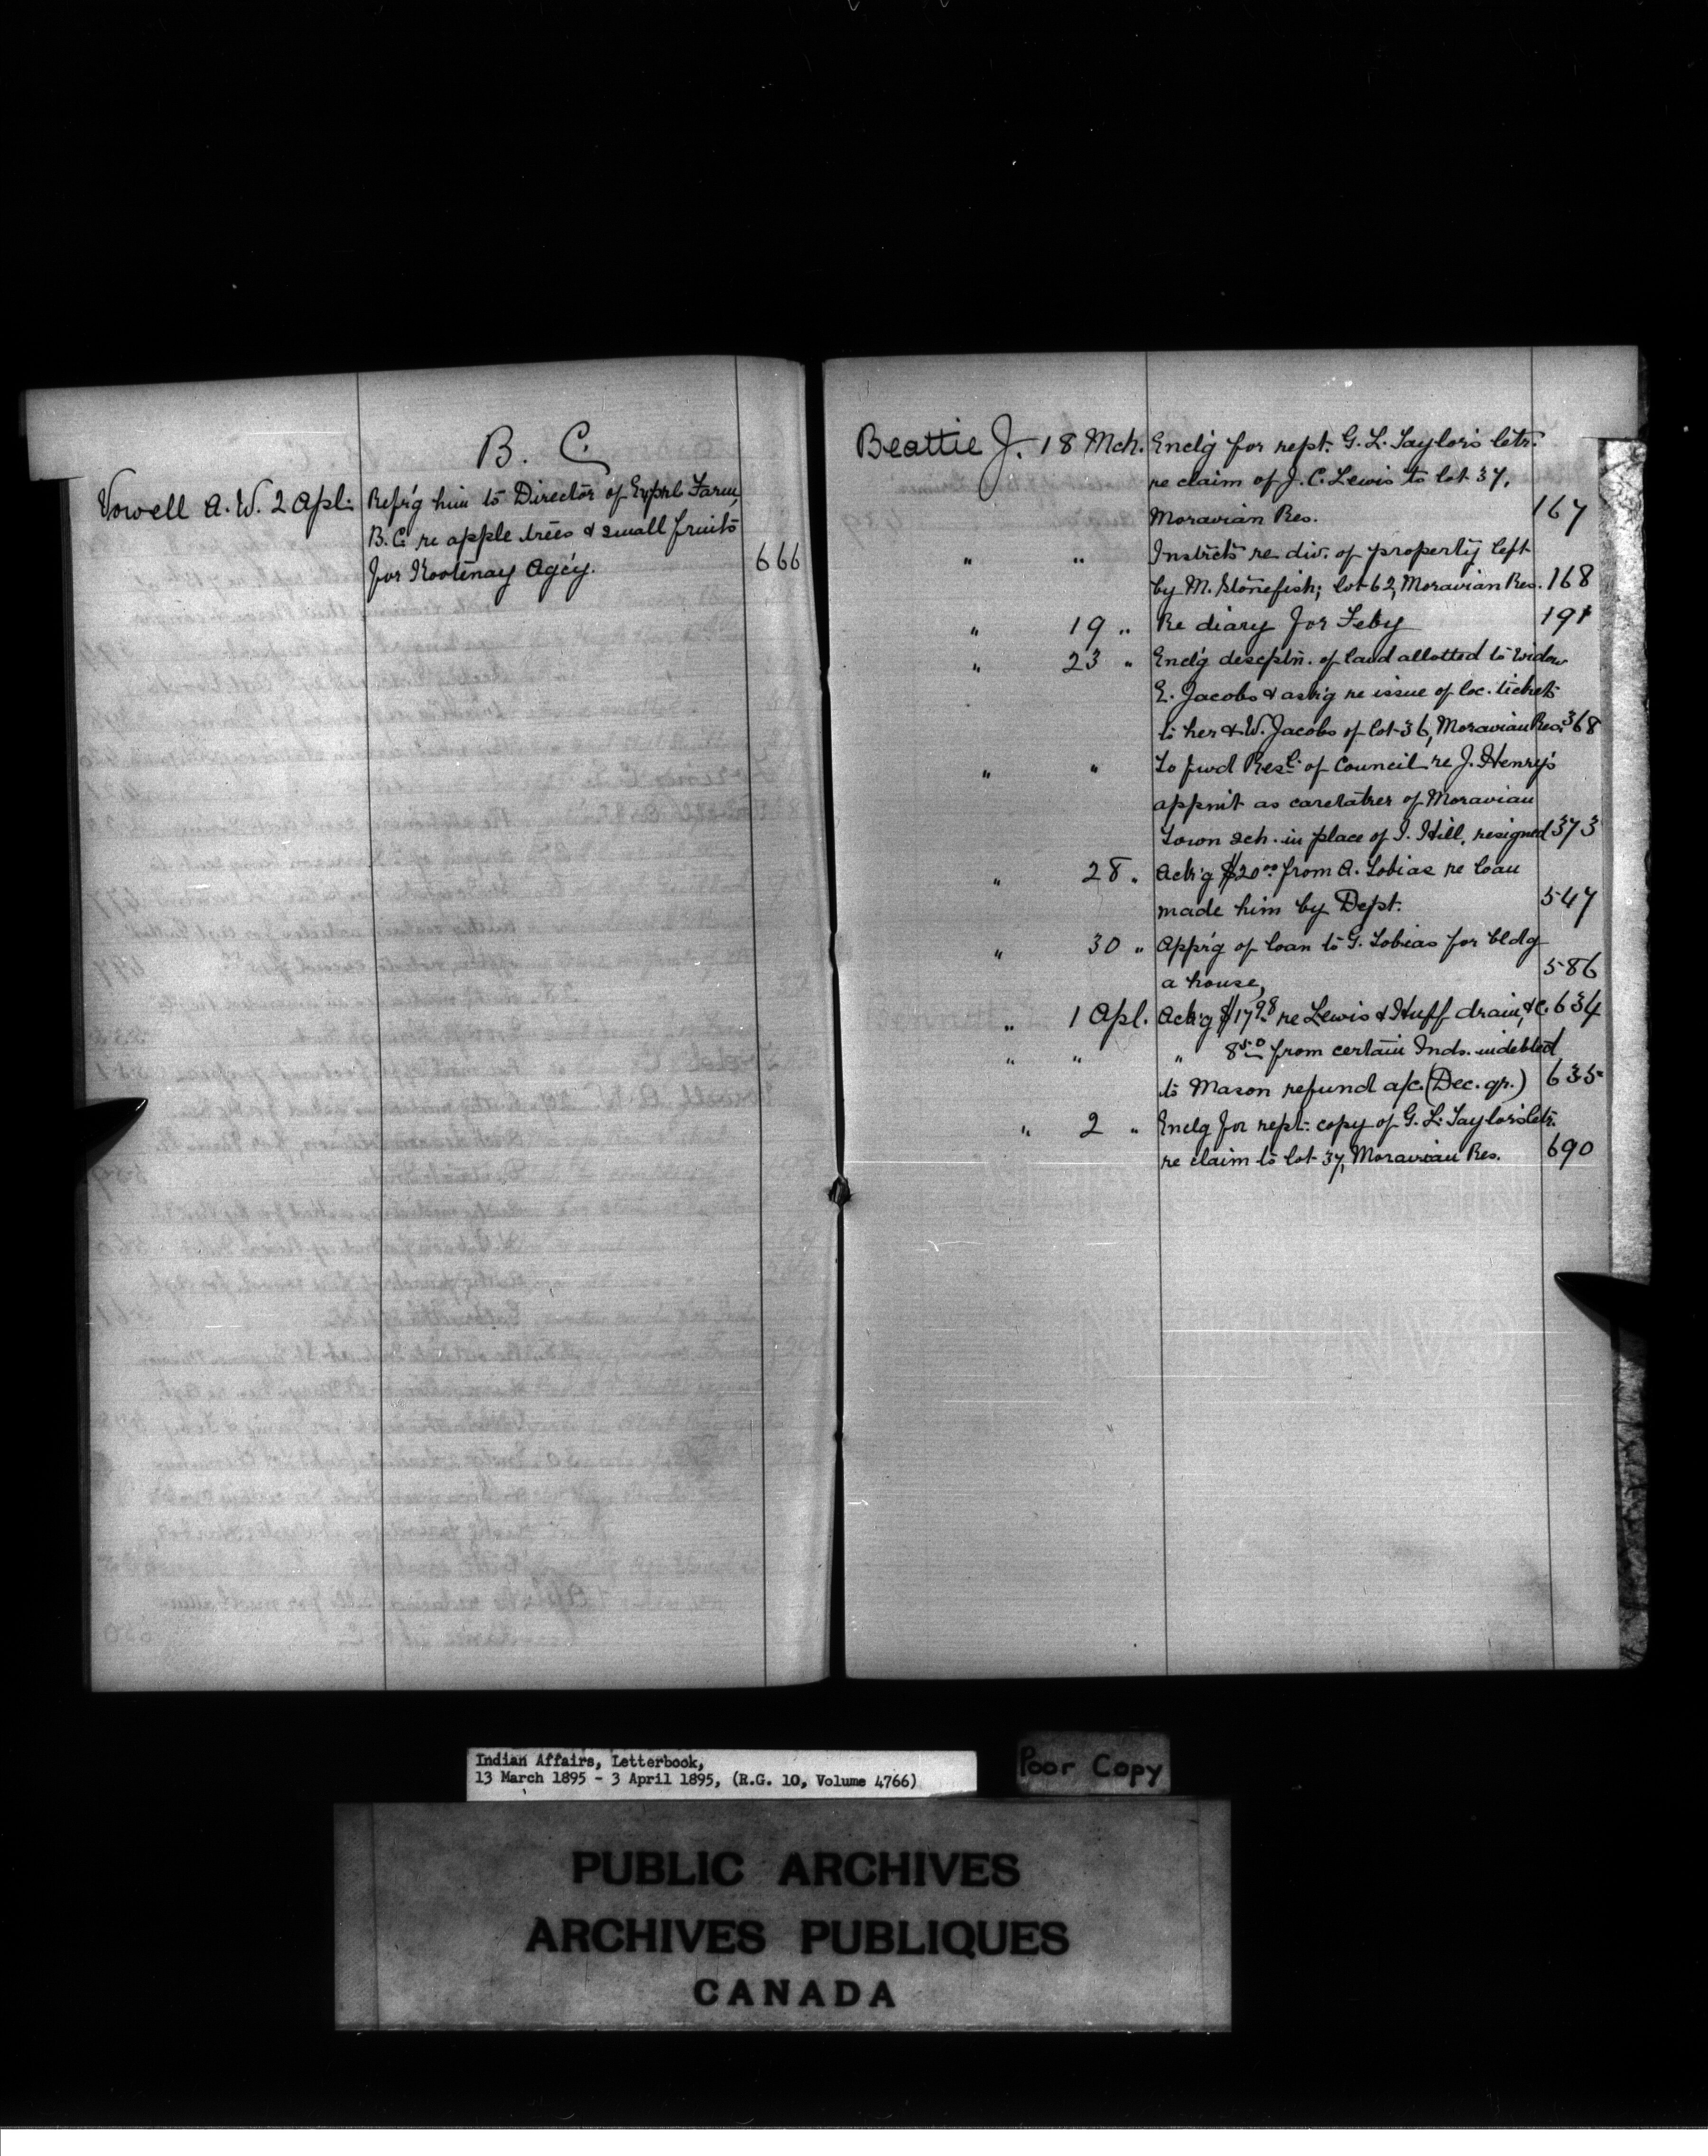 B. C.
Vowell A. W. 2 Apl. Refr'g him to Director of Exptl Farm,
B.C. re apple trees & small fruits
for Kootenay Agcy. 666
Beattie J. 18 Mch. Encl'g for rept. G. L. Taylor's letr.
re claim of J. C. Lewis to lot 37,
Moravian Res. 167
" " Instrcts re div. of property left
by M. Stonefish; lot 62, Moravian Res. 168
" 19 " Re diary for Feby 191
" 23 " Encl'g descptn. of land allotted to widow
E. Jacobs & ask'g re issue of loc. tickets
to her & W. Jacobs of lot 36, Moravian Res. 368
" " To fwd Resl. of Council re J. Henry's
appnit as caretaker of Moravian
Town sch. in place of I. Hill, resigned 373
" 28 " Ack'g $20.00 from A. Tobias re loan
made him by Dept. 547
" 30 " Appr'g of loan to G. Tobias for bldg
a house, 586
" 1 Apl. Ack'g $17.98 re Lewis & Huff drain, &c. 634
" " " 8.50 from certain Inds. indebted
to Mason refund a/c. (Dec. qr.) 635
" 2 " Enclg for rept. copy of G. L. Taylor's letr.
re claim to lot 37, Moravian Res. 690
Indian Affairs, Letterbook,
13 March 1895 - 3 April 1895, (R.G. 10, Volume 4766)
Poor Copy
PUBLIC ARCHIVES
ARCHIVES PUBLIQUES
CANADA